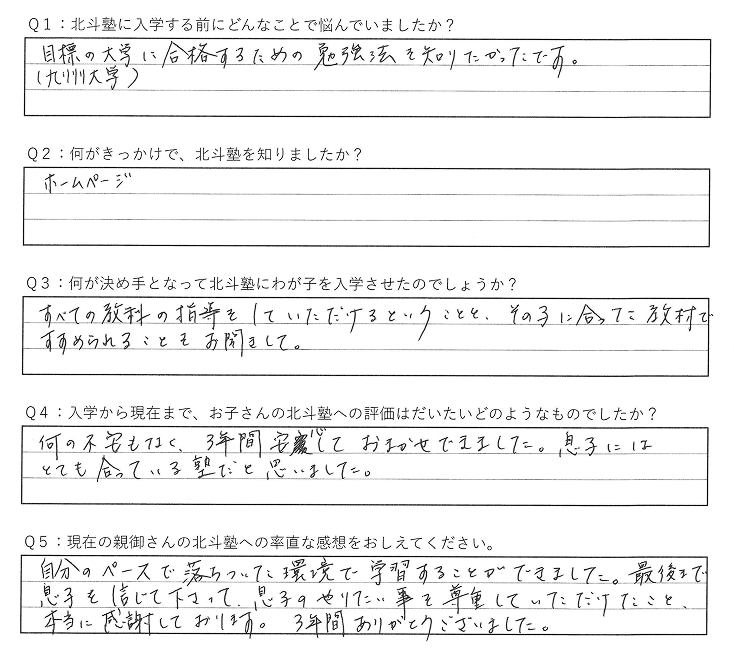 Q1：北斗塾に入学する前にどんなことで悩んでいましたか？
目標の大学に合格するための勉強法を知りたかったです。
(九州大学)
Q2：何がきっかけで、北斗塾を知りましたか？
ホームページ
Q3：何が決め手となって北斗塾にわが子を入学させたのでしょうか？
すべての教科の指導をしていただけるということと、その子に合った教材で
すすめられることもお聞きして。
Q4：入学から現在まで、お子さんの北斗塾への評価はだいたいどのようなものでしたか？
何の不安もなく、3年間安心しておまかせできました。息子には
とても合っている塾だと思いました。
Q5：現在の親御さんの北斗塾への率直な感想をおしえてください。
自分のペースで落ちついた環境で学習することができました。最後まで
息子を信じて下さって、息子のやりたい事を尊重していただけたこと、
本当に感謝しております。3年間ありがとうございました。